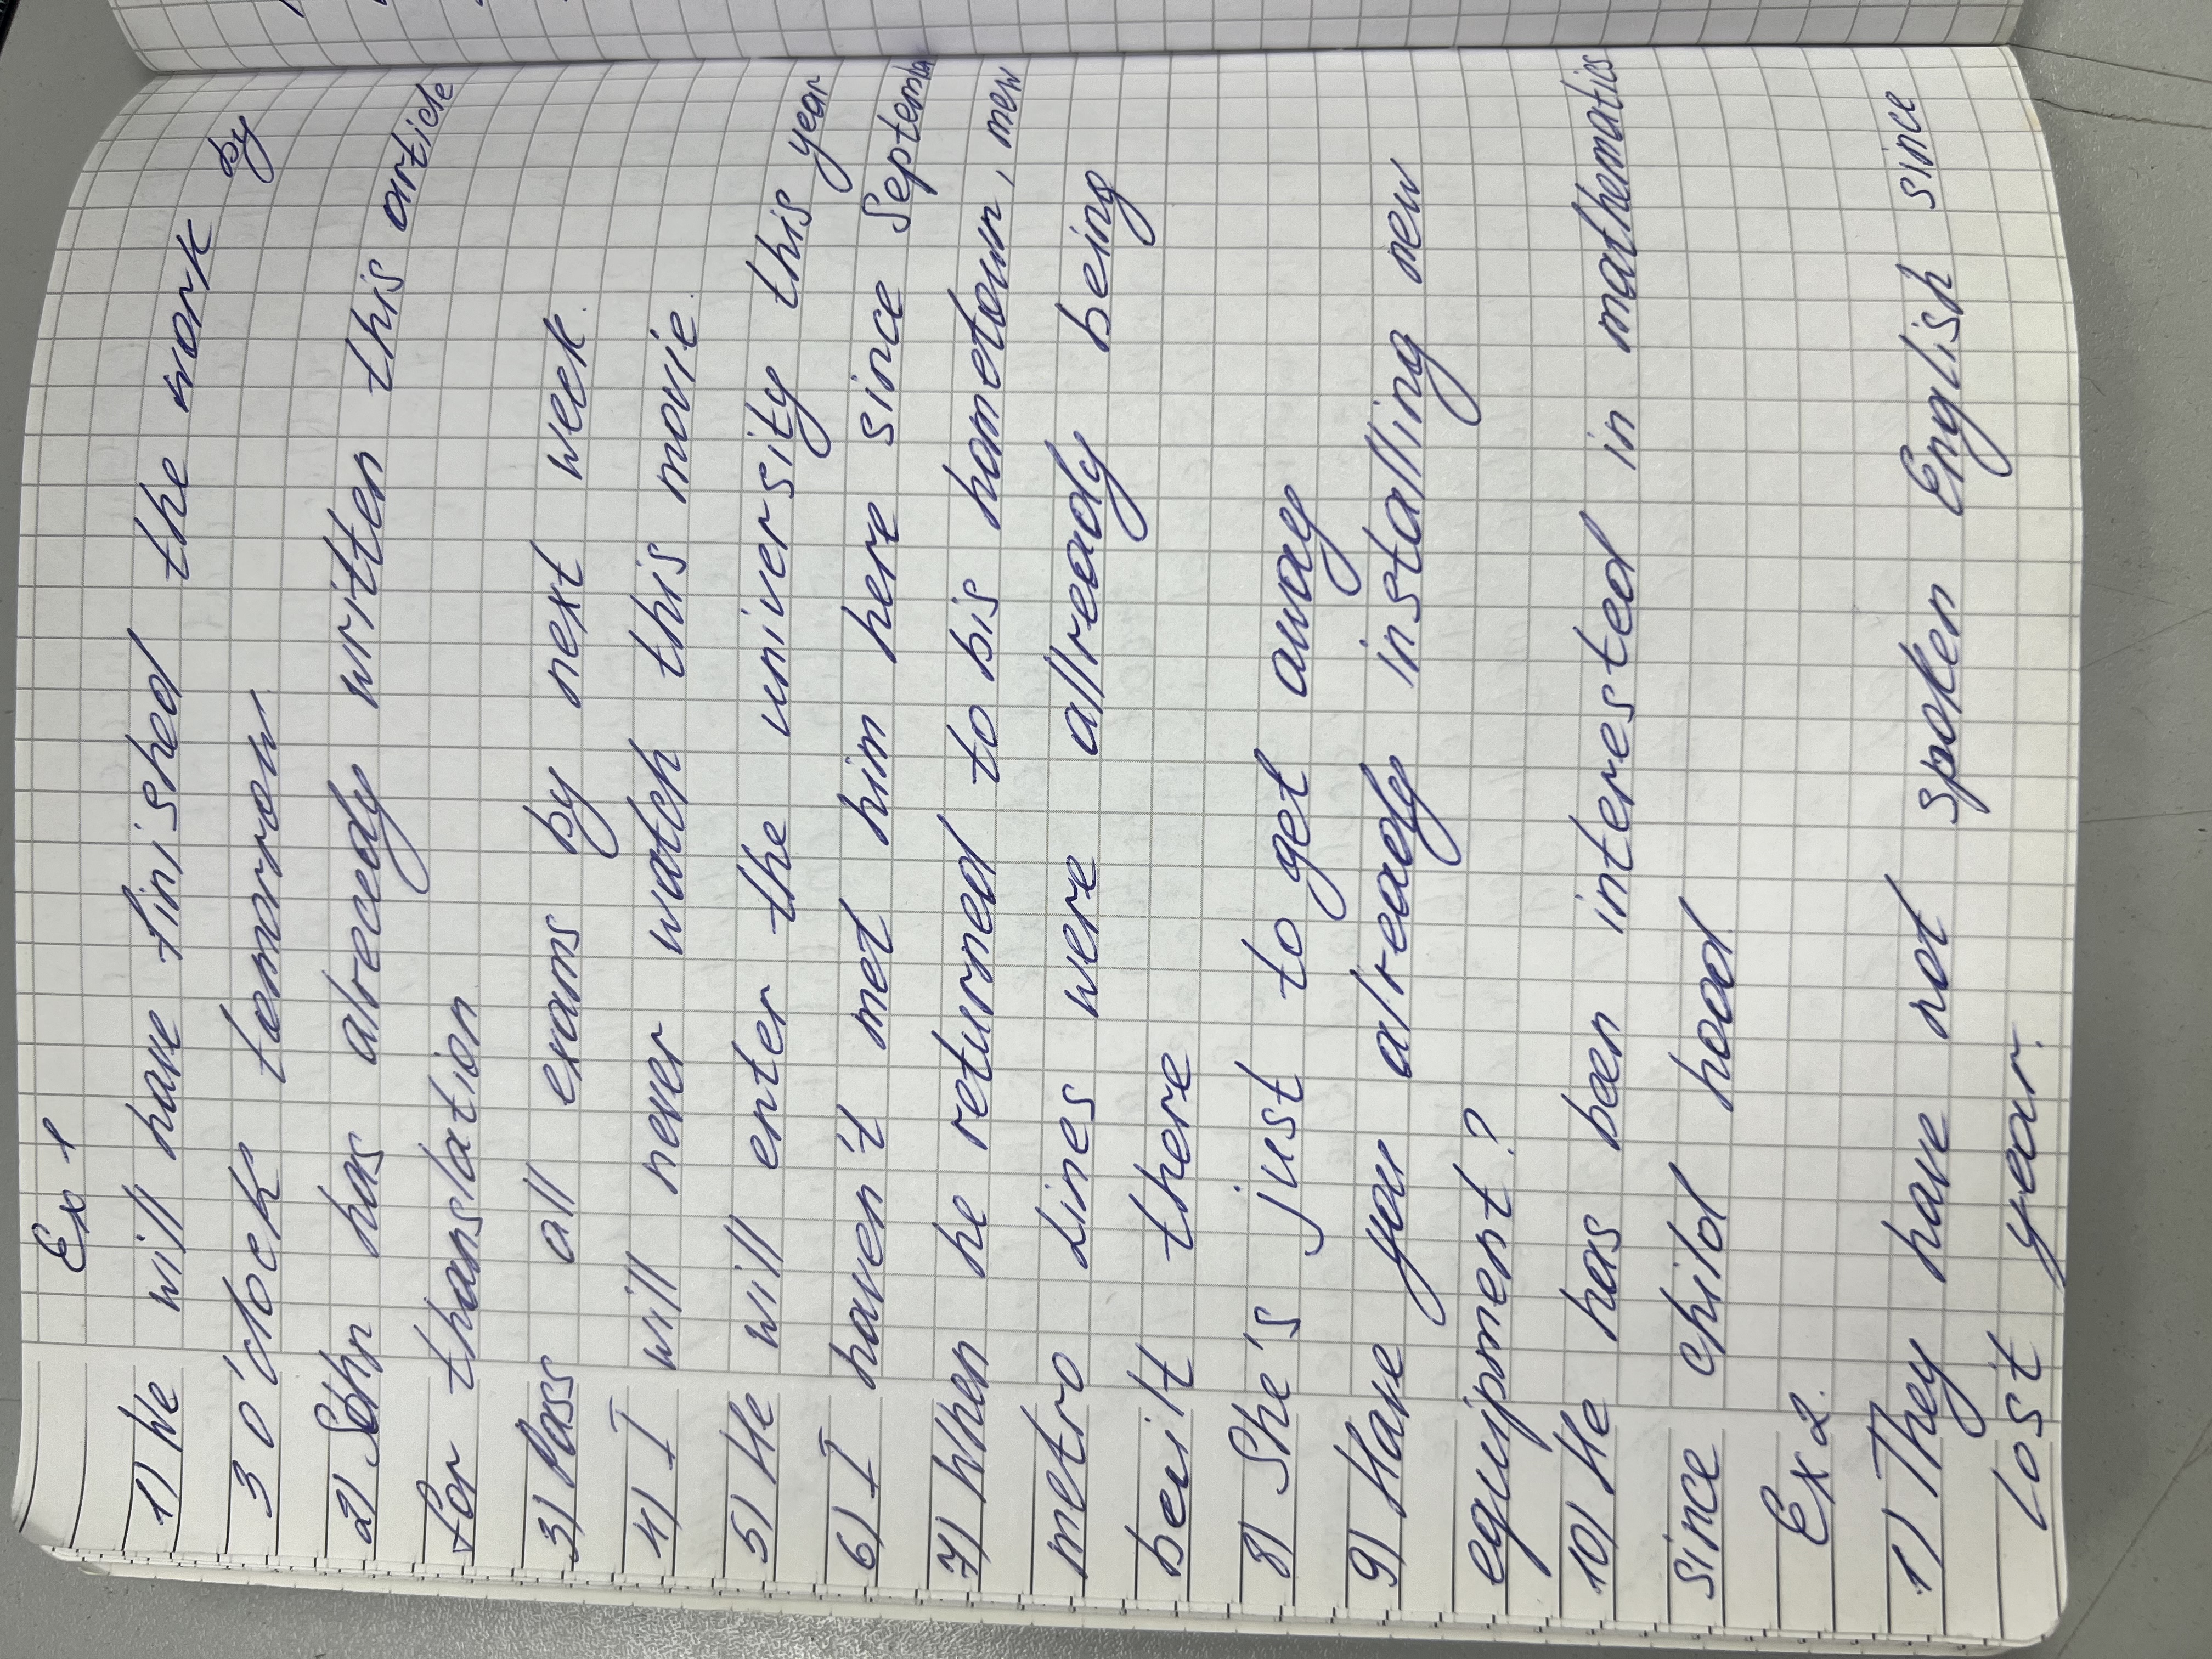 Ex 1
1) We will have finished the work by
3 o'clock tomorrow.
2) John has already written this article
for thanslation
3) Pass all exams by next week.
4) I will never watch this movie.
5) He will enter the university this year
6) I haven't met him here since September
7) When he returned to his hometown, new
metro Lines were allready being
built there
8) She's just to get away
9) Have you already installing new
equipment?
10) He has been interested in mathematics
since child hood.
Ex 2.
1) They have not spoken English since
Lost year.